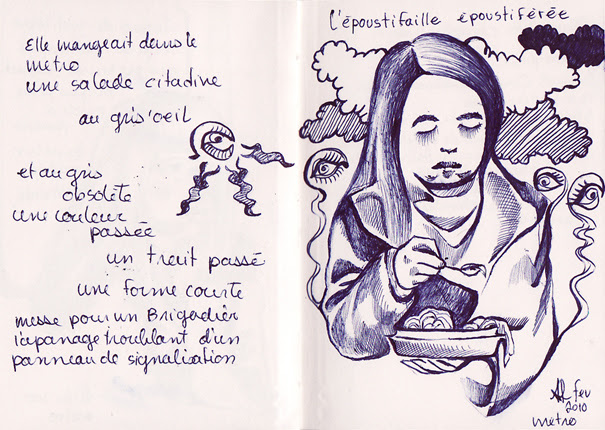 Elle mangeait dans le
metro
une salade citadine
au gris'oeil
et au gris
obsolete
une couleur
passée
un trait passé
une forme courte
messe pour un Brigadier
l'apanage troublant d'un
panneau de signalisation
L'époustifaille époustiférée
fev
2010
metro